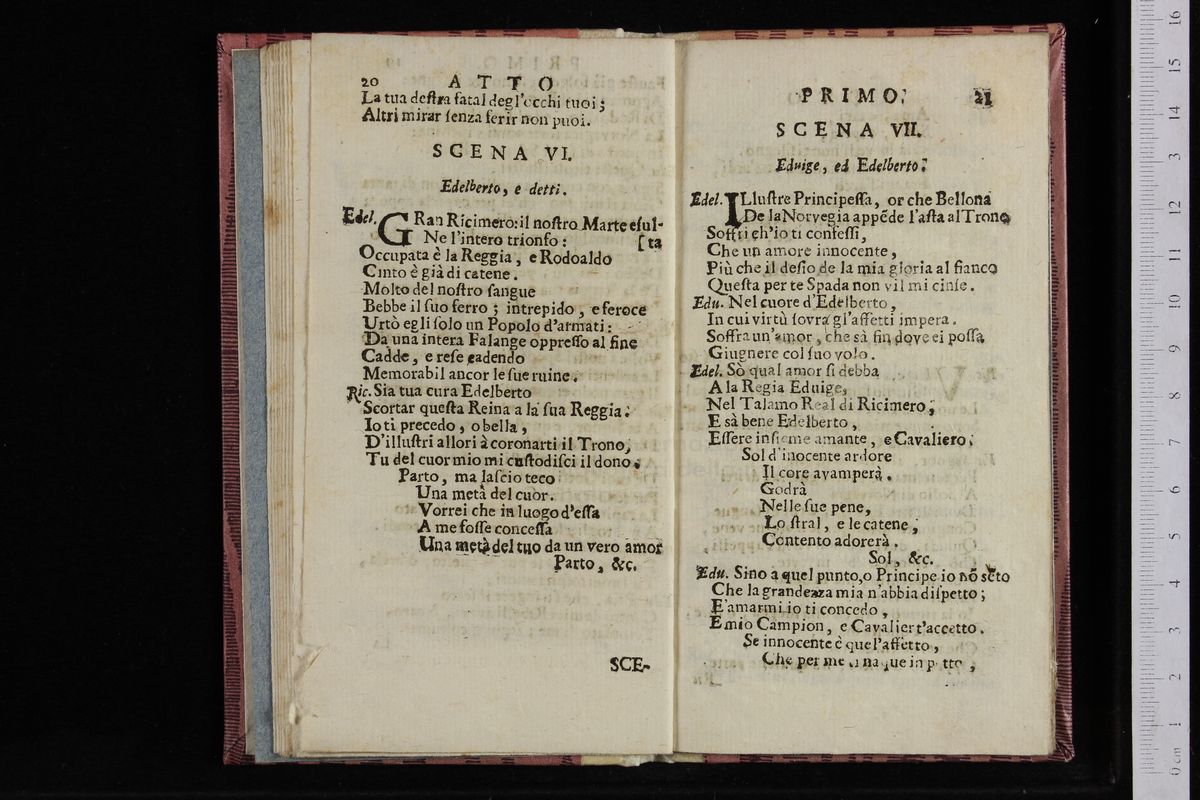 20 ATTO
La tua destra fatal degl'occhi tuoi;
Altri mirar senza ferir non puoi.
SCENA VI.
Edelberto, e detti.
Edel. GRan Ricimero: il nostro Marte esul-
Ne l'intero trionfo: [ta
Occupata è la Reggia, e Rodoaldo
Cinto è già di catene.
Molto del nostro sangue
Bebbe il suo ferro; intrepido, e feroce
Urtò egli solo un Popolo d'armati:
Da una intera Falange oppresso al fine
Cadde, e rese cadendo
Memorabil ancor le sue ruine.
Ric. Sia tua cura Edelberto
Scortar questa Reina a la sua Reggia.
Io ti precedo, o bella,
D'illustri allori à coronarti il Trono,
Tu del cuor mio mi custodisci il dono.
Parto, ma lascio teco
Una metà del cuor.
Vorrei che in luogo d'essa
A me fosse concessa
Una metà del tuo da un vero amor
Parto, &c.
SCE-
PRIMO. 21
SCENA VII.
Eduige, ed Edelberto.
Edel. ILlustre Principessa, or che Bellona
De la Norvegia appẽde l'asta al Trono
Soffri ch'io ti confessi,
Che un amore innocente,
Più che il desio de la mia gloria al fianco
Questa per te Spada non vil mi cinse.
Edu. Nel cuore d'Edelberto,
In cui virtù sovra gl'affetti impera.
Soffra un'amor, che sà fin dove ei possa
Giugnere col suo volo.
Edel. Sò qual amor si debba
A la Regia Eduige,
Nel Talamo Real di Ricimero;
E sà bene Edelberto,
Essere insieme amante, e Cavaliero.
Sol d'inocente ardore
Il core avamperà.
Godrà
Nelle sue pene,
Lo stral, e le catene,
Contento adorerà.
Sol, &c.
Edu. Sino a quel punto, o Principe io nõ sẽto
Che la grandezza mia n'abbia dispetto;
E amarmi io ti concedo,
E mio Campion, e Cavalier t'accetto.
Se innocente è quel'affetto,
Che per me ti naque in petto,